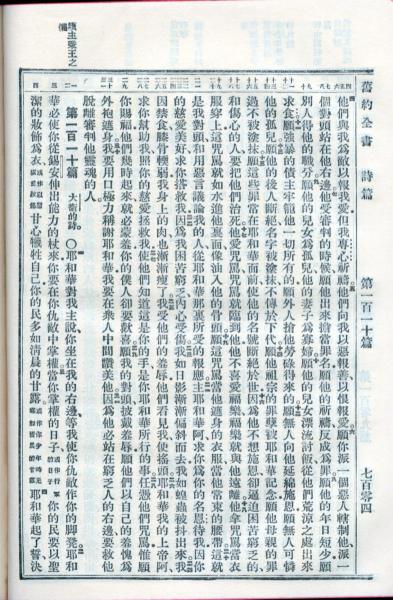 舊約全書 詩篇 第一百一十篇 七百零四
他們與我為敵以報我愛但我專心祈禱他們向我以惡報善以恨報愛願你派一個惡人轄制他派一
個對頭站在他右邊他受審判的時候願他出來擔當罪名願他的祈禱反成為罪願他的年日短少願
別人得他的職分願他的兒女為孤兒他的妻子為寡婦願他的兒女漂流討飯從他們荒涼之處出來
求食願強暴的債主牢籠他一切所有的願外人搶他勞碌得來的願無人向他延綿施恩願無人可憐
他的孤兒願他的後人斷絕名字被塗抹不傳於下代願他祖宗的罪孽被耶和華記念願他母親的罪
過不被塗抹願這些罪常在耶和華面前使他的名號斷絕於世因為他不想施恩卻逼迫困苦窮乏的
和傷心的人要把他們治死他愛咒罵咒罵就臨到他他不喜愛福樂福樂就與他遠離他拿咒罵當衣
服穿上這咒罵就如水進他裏面像油入他的骨頭願這咒罵當他遮身的衣服當他常束的腰帶這就
是我對頭和用惡言議論我的人從耶和華那裏所受的報應主耶和華阿求你為你的名恩待我因你
的慈愛美好求你搭救我因為我困苦窮乏內心受傷我如日影漸漸偏斜而去我如蝗蟲被抖出來我
因禁食膝骨輭弱我身上的肉也漸漸瘦了我受他們的羞辱他們看見我便搖頭耶和華我的上帝阿
求你幫助我照你的慈愛拯救我使他們知道這是你的手是你耶和華所行的事任憑他們咒罵惟願
你賜福他們幾時起來就必蒙羞你的僕人卻要歡喜願我的對頭披戴羞辱願他們以自己的羞愧為
外袍遮身我要用口極力稱謝耶和華我要在眾人中間讚美他因為他必站在窮乏人的右邊要救他
脫離審判他靈魂的人
第一百一十篇 大衛的詩 ○耶和華對我主說你坐在我的右邊等我使你仇敵作你的腳凳耶和
華必使你從錫安伸出能力的杖來你要在你仇敵中掌權當你掌權的日子或作行軍的日子你的民要以聖
潔的妝飾為衣甘心犧牲自己你的民多如清晨的甘露耶和華起了誓決